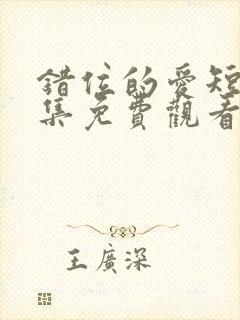 錯位的愛短
集免費觀看
王廣深